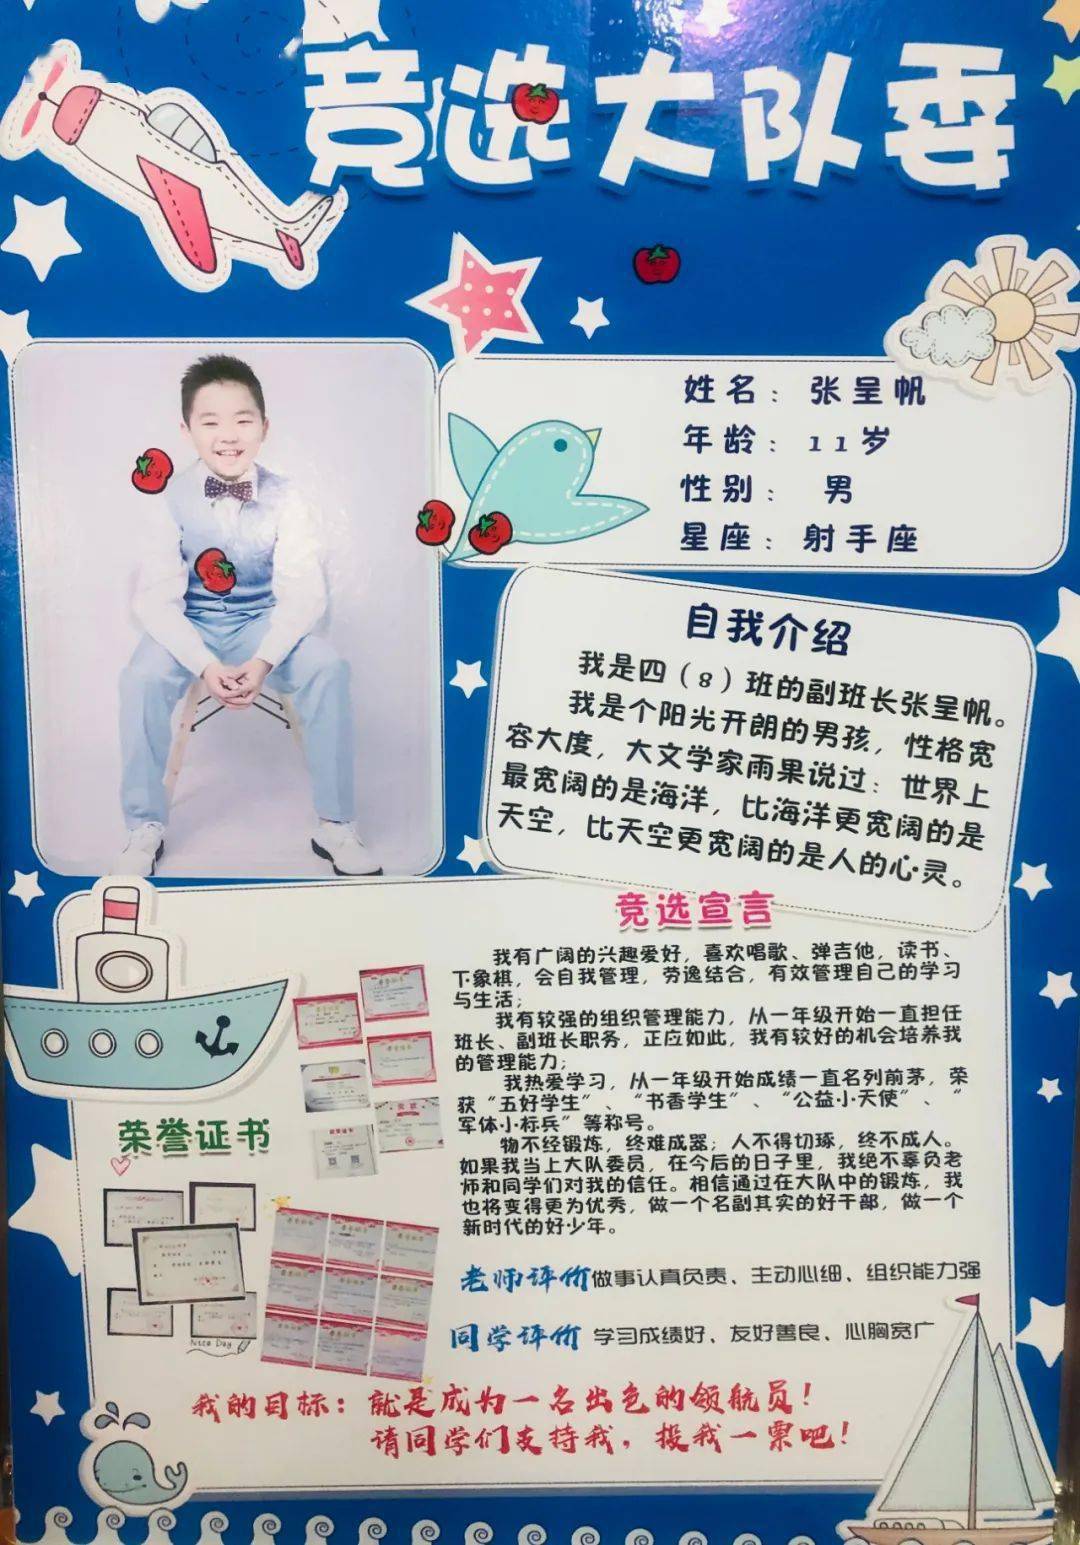 竞选大队委
姓名：张呈帆
年龄：11岁
性别：男
星座：射手座
自我介绍
我是四（8）班的副班长张呈帆。
我是个阳光开朗的男孩，性格宽
容大度，大文学家雨果说过：世界上
最宽阔的是海洋，比海洋更宽阔的是
天空，比天空更宽阔的是人的心灵。
竞选宣言
我有广阔的兴趣爱好，喜欢唱歌、弹吉他，读书、
下象棋，会自我管理，劳逸结合，有效管理自己的学习
与生活；
我有较强的组织管理能力，从一年级开始一直担任
班长、副班长职务，正应如此，我有较好的机会培养我
的管理能力；
我热爱学习，从一年级开始成绩一直名列前茅，荣
获“五好学生”、“书香学生”、“公益小天使”、“
军体小标兵”等称号。
物不经锻炼，终难成器；人不得切琢，终不成人。
如果我当上大队委员，在今后的日子里，我绝不辜负老
师和同学们对我的信任。相信通过在大队中的锻炼，我
也将变得更为优秀，做一个名副其实的好干部，做一个
新时代的好少年。
荣誉证书
Nice Day
老师评价做事认真负责、主动心细、组织能力强
同学评价 学习成绩好、友好善良、心胸宽广
我的目标：就是成为一名出色的领航员！
请同学们支持我，投我一票吧！